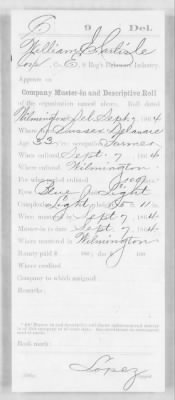 C 9 Del.
William E Carlisle
Corp, Co. E, 9 Reg't Delaware Infantry.
Appears on
Company Muster-in and Descriptive Roll
of the organization named above. Roll dated
Wilmington Del Sept 7, 1864
Where born Sussex Delaware
Age 33 y'rs; occupation Farmer
When enlisted Sept. 7, 1864
Where enlisted Wilmington
For what period enlisted 100 days
Eyes Blue; hair Light
Complexion Light; height 5 ft. 11 in.
When mustered in Sept 7, 1864
Muster-in date Sept. 7, 1864
Where mustered in Wilmington
Bounty paid $ 100; due $ 100
Where credited
Company to which assigned
Remarks:
Book mark:
Lopez
Copyist.